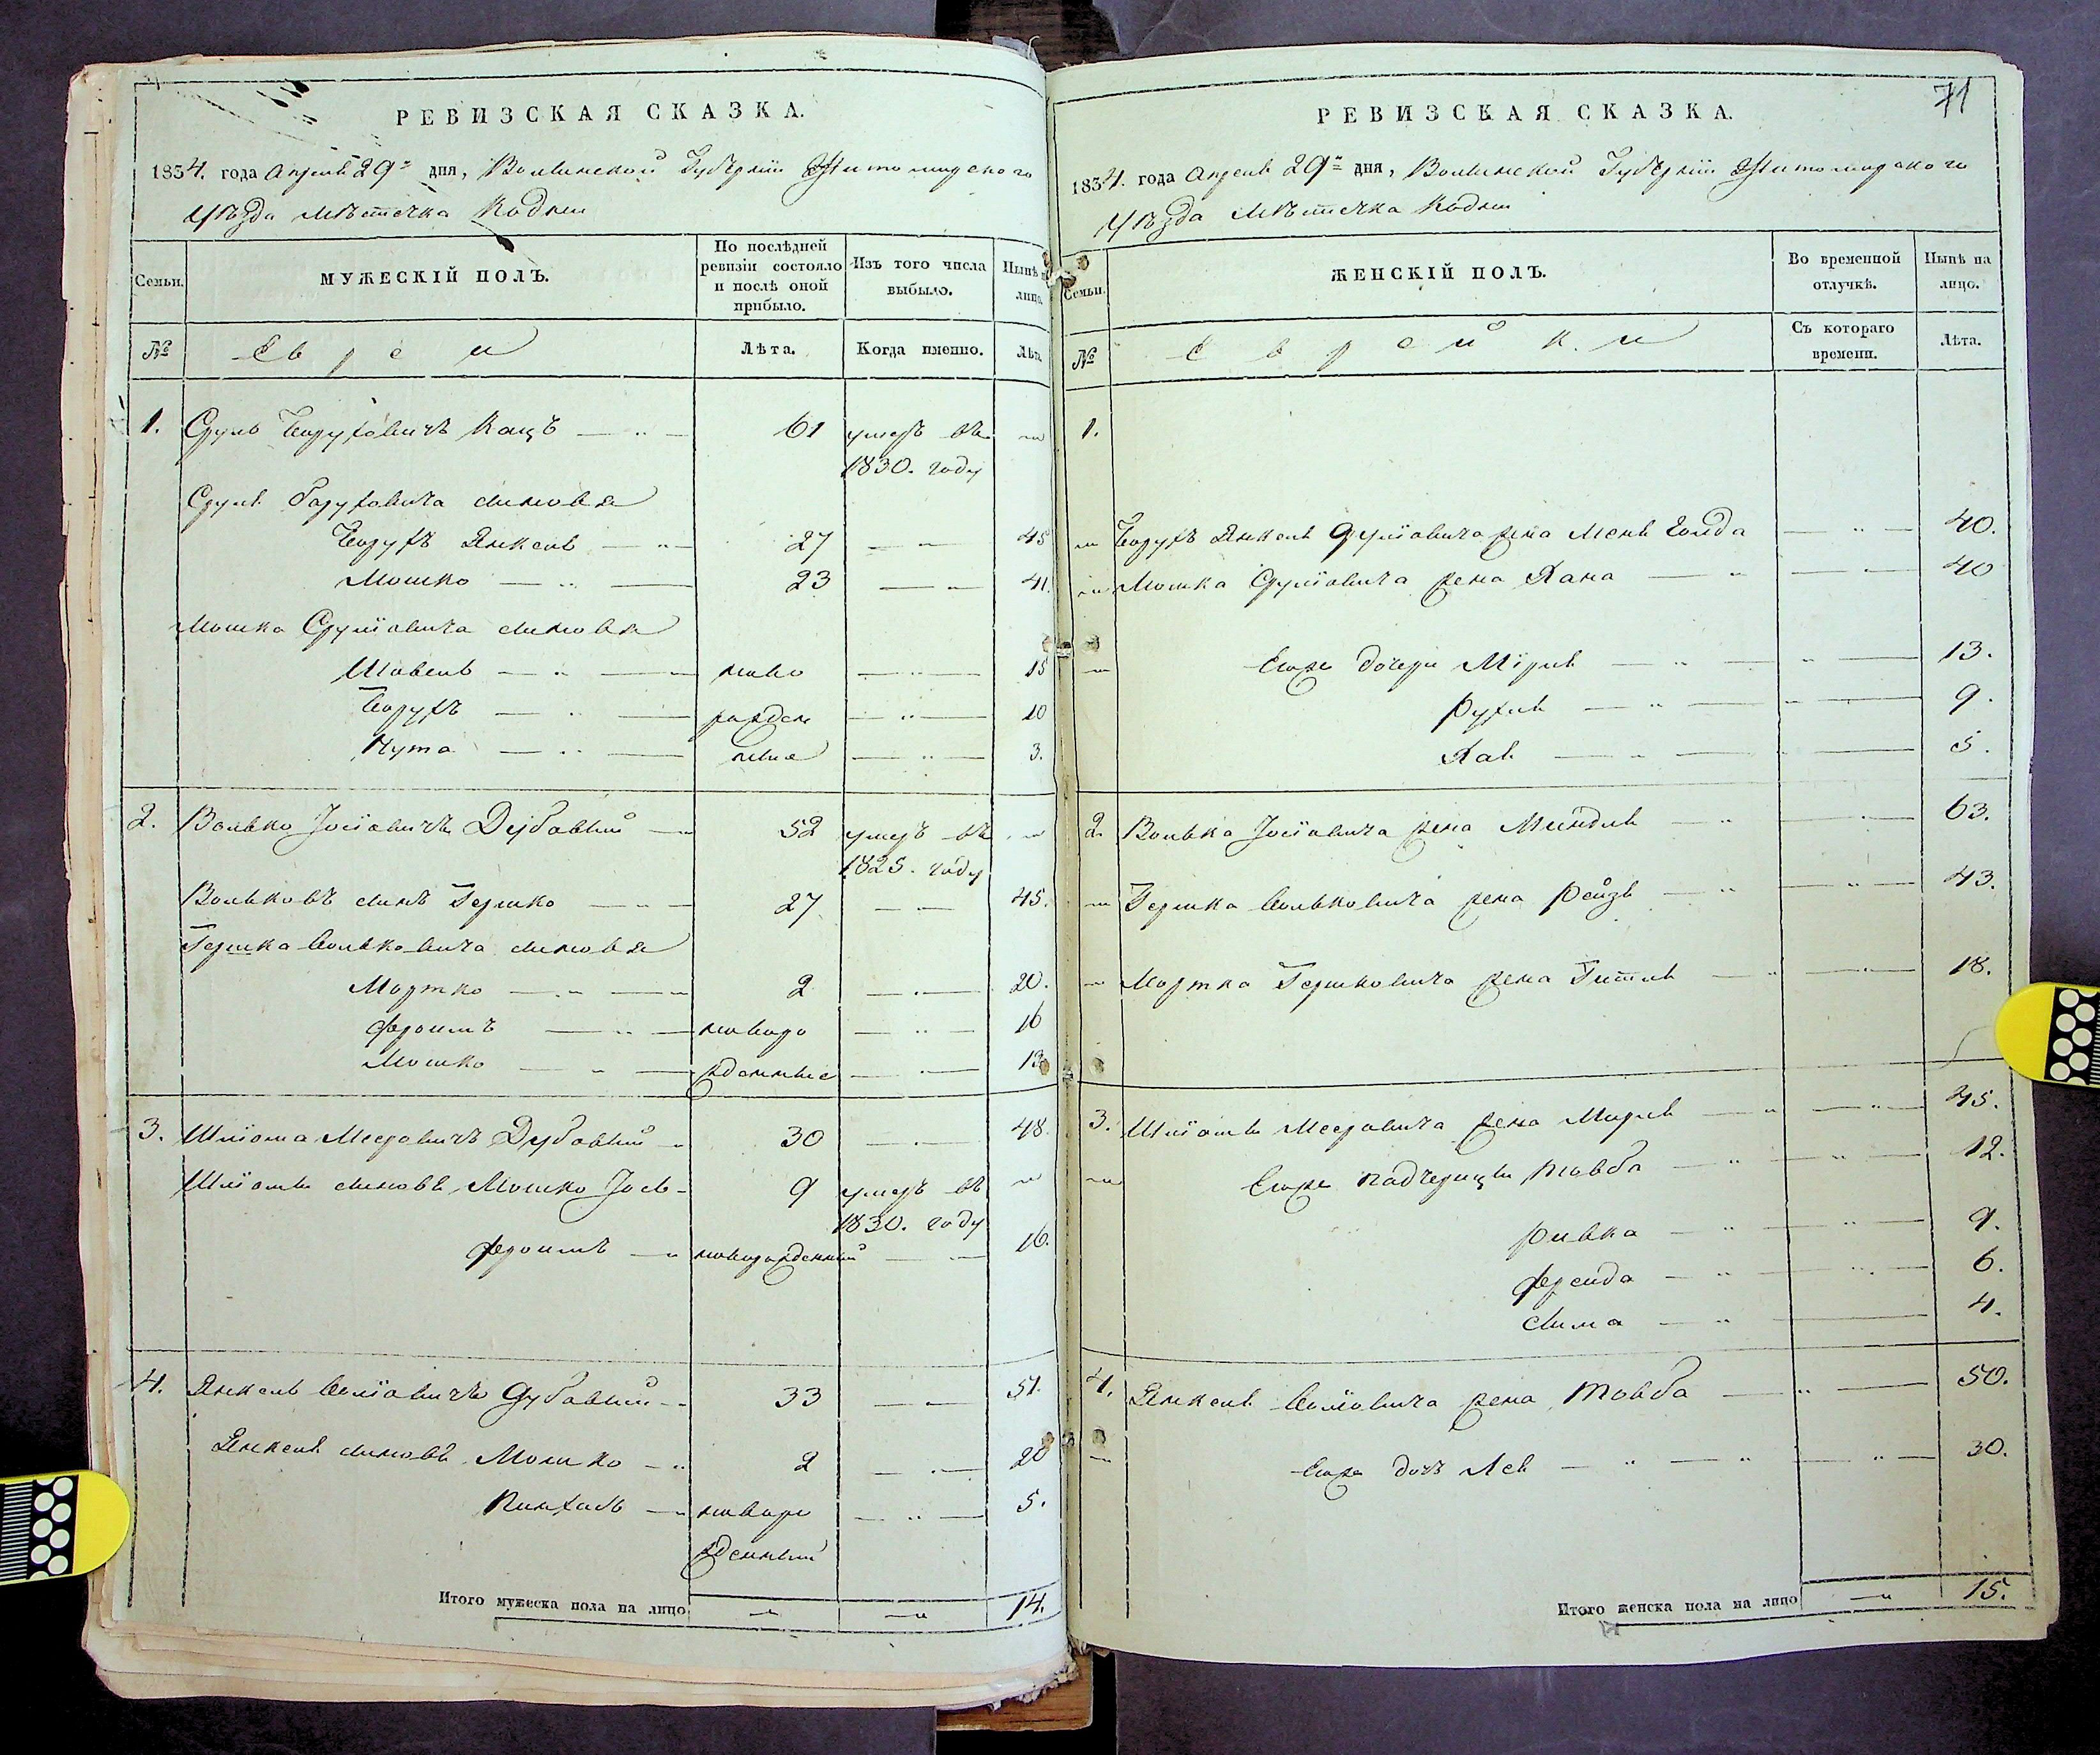 РЕВИЗСКАЯ СКАЗКА.
1834. года Апреля 29го дня, Волынской Губернии Житомирского
Уѣзда Мѣстечка Кодни
Семьи.
МУЖЕСКІЙ ПОЛЪ.
По послѣдней ревизіи состояло и послѣ оной прибыло.
Изъ того числа выбыло.
Нынѣ на лицо.
№
Евреи
Лѣта.
Когда именно.
Лѣта.
1. Сруль Боруховичъ Кацъ 61 умеръ въ
1830. году
Сруля Боруховича сыновья
Борухъ Янкель 27 45
Мошко 23 41.
Мошка Сруліовича сыновья
Шовель ново 15
Борухъ рожден 10
Нута ные 3.
2. Волько Іосіовичъ Дубовый 52 умеръ въ
1825. году
Вольковъ сынъ Гершко 27 45.
Гершка Вольковича сыновья
Мортко 2 20.
Фроимъ новоро 16
Мошко жденные 13
3. Шліома Мееровичъ Дубовый 30 48.
Шліомы сыновья Мошко Іось 9 умеръ въ
1830. году
Фроимъ новорожденный 16.
4. Янкель Волiовичъ Дубовый 33 51.
Янкеля сыновья Мошко 2 20
Пинхасъ новоро 5.
жденный
Итого мужеска пола на лицо 14.
71
РЕВИЗСКАЯ СКАЗКА.
1834. года Апреля 29го дня, Волынской Губерніи Житомирского
Уѣзда Мѣстечка Кодни
Семьи.
ЖЕНСКІЙ ПОЛЪ.
Во временной отлучкѣ.
Нынѣ на лицо.
№
Еврейки
Съ котораго времени.
Лѣта.
1.
Борухъ Янкеля Сруліовича жена Меня Голда 40.
Мошка Сруліовича жена Хана 40
Его же дочери Міря 13.
Рухля 9.
Хая 5.
2. Волька Іосіовича жена Миндля 63.
Гершка Вольковича жена Рейзя 43.
Мортка Гершковича жена Гитля 18.
3. Шліомы Мееровича жена Миря 45.
Его же падчерицы Товба 12.
Ривка 9.
Фрейда 6.
Сима 4.
4. Янкеля Волiовича жена Товба 50.
Его же дочь Лея 30.
Итого женска пола на лицо 15.